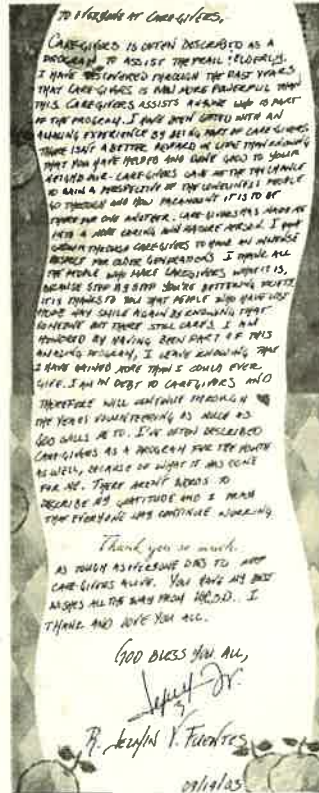 TO EVERYONE AT CAREGIVERS,
CAREGIVERS IS OFTEN DESCRIBED AS A
PROGRAM TO ASSIST THE FRAIL ELDERLY.
I HAVE DISCOVERED THROUGH THE PAST YEARS
THAT CAREGIVERS IS EVEN MORE POWERFUL THAN
THIS. CAREGIVERS ASSISTS ANYONE WHO IS PART
OF THE PROGRAM. I HAVE BEEN GIFTED WITH AN
AMAZING EXPERIENCE BY BEING PART OF CAREGIVERS.
THERE ISN'T A BETTER REWARD IN LIFE THAN KNOWING
THAT YOU HAVE HELPED AND DONE GOOD TO YOUR
NEIGHBOUR. CAREGIVERS GAVE ME THE CHANCE
TO GAIN A PERSPECTIVE OF THE LONELINESS PEOPLE
GO THROUGH AND HOW PARAMOUNT IT IS TO BE
THERE FOR ONE ANOTHER. CAREGIVERS HAS MADE ME
INTO A MORE CARING AND MATURE PERSON. I HAVE
GROWN THROUGH CAREGIVERS TO HAVE AN IMMENSE
RESPECT FOR OLDER GENERATIONS. I THANK ALL
THE PEOPLE WHO MAKE CAREGIVERS WHAT IT IS,
BECAUSE STEP BY STEP YOU'RE BETTERING SOCIETY.
IT IS THANKS TO YOU THAT PEOPLE WHO HAVE LOST
HOPE MAY SMILE AGAIN BY KNOWING THAT
SOMEONE OUT THERE STILL CARES. I AM
HONORED BY HAVING BEEN PART OF THIS
AMAZING PROGRAM, I LEAVE KNOWING THAT
I HAVE GAINED MORE THAN I COULD EVER
GIVE. I AM IN DEBT TO CAREGIVERS AND
THEREFORE WILL CONTINUE THROUGH
THE YEARS VOLUNTEERING AS MUCH AS
GOD WILLS ME TO. I'VE OFTEN DESCRIBED
CAREGIVERS AS A PROGRAM FOR THE YOUTH
AS WELL, BECAUSE OF WHAT IT HAS DONE
FOR ME. THERE AREN'T WORDS TO
DESCRIBE MY GRATITUDE AND I PRAY
THAT EVERYONE MAY CONTINUE WORKING
Thank you so much.
AS TOUGH AS EVERYONE DOES TO KEEP
CAREGIVERS ALIVE. YOU HAVE MY BEST
WISHES ALL THE WAY FROM U.C.S.D. I
THANK AND LOVE YOU ALL.
GOD BLESS YOU ALL,
R. V. FUENTES
09/19/03